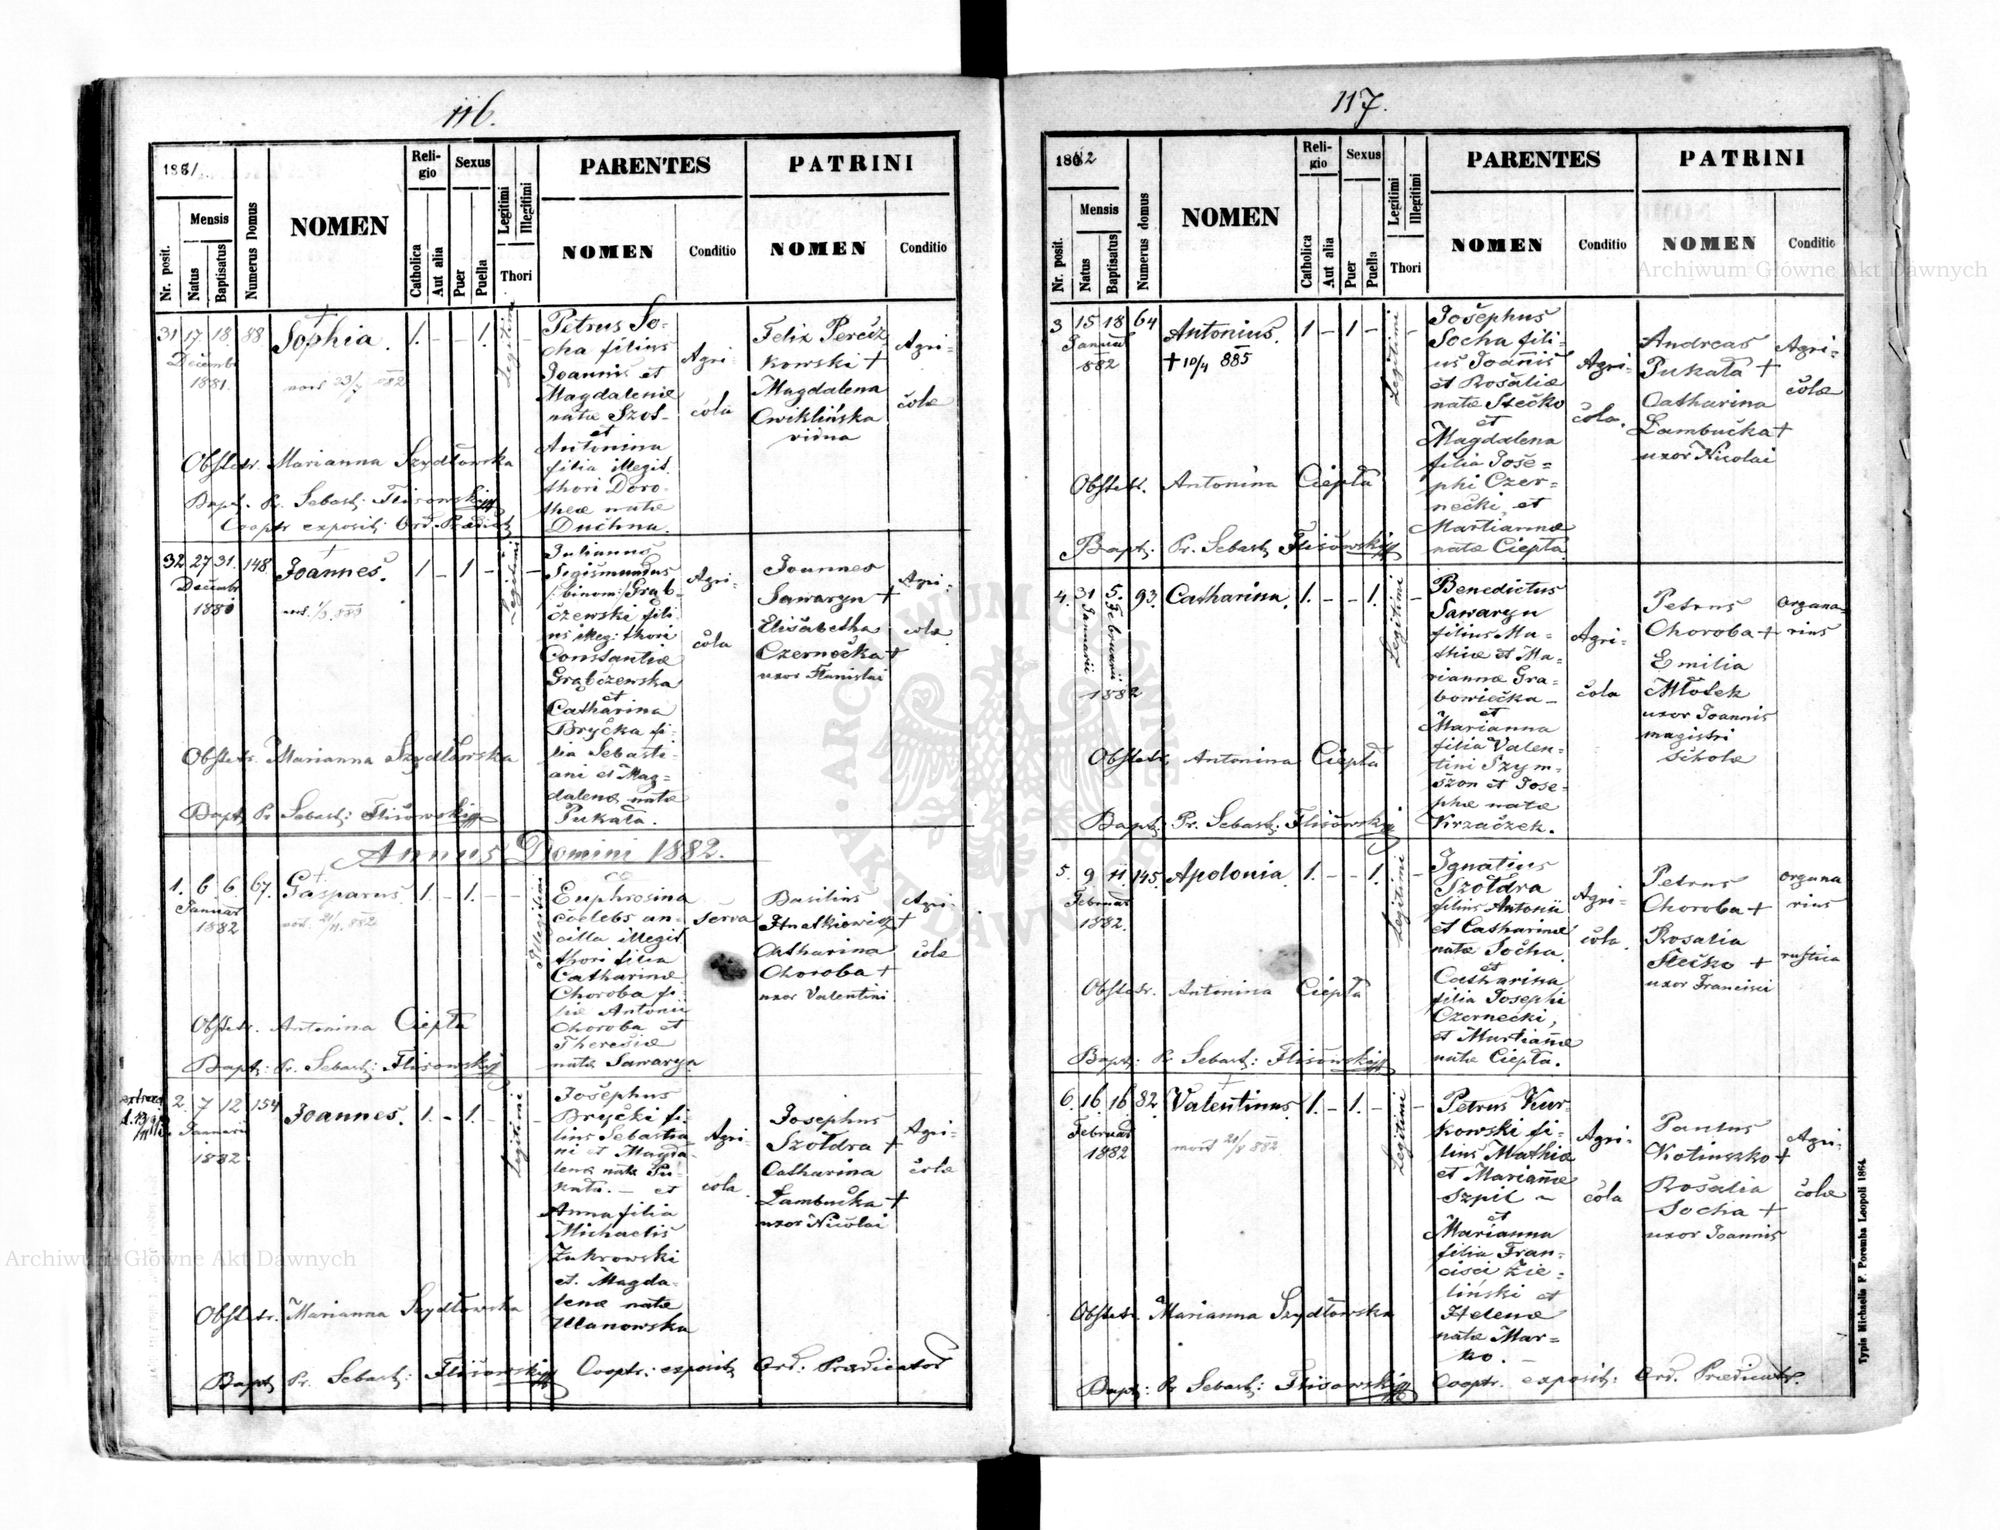 116.
1881.
Nr. posit.
Mensis
Natus
Baptisatus
Numerus Domus
NOMEN
Reli-
gio
Catholica
Aut alia
Sexus
Puer
Puella
Legitimi
Illegitimi
Thori
PARENTES
NOMEN
Conditio
PATRINI
NOMEN
Conditio
31 17. 18. 88
Decembr
1881.
Sophia.
1. - - 1.
Legitimi
Petrus So-
cha filius
Joannis et
Magdalenæ
natæ Szos-
et
Antonina
filia illegit.
thori Doro-
theæ natæ
Duchna.
Agri-
cola
Felix Percz
kowski +
Magdalena
Cwiklińska
vidua
Agri-
colæ
Obstetr. Marianna Szydłowska
Bapt. Pr. Sebast: Flisowski
Cooptr exposit: Ord. Prædict
32 27 31. 148
Decembr
1880
Joannes.
1 - 1 -
Legitimi
Julianus
Sigismundus
binom: Grąb-
czewski fili-
us illeg: thori
Constantiæ
Grąbczewska
et
Catharina
Bryćka fi-
lia Sebasti-
ani et Mag-
dalenæ natæ
Pukała.
Agri-
cola
Joannes
Sawaryn +
Elisabetha
Czernecka +
uxor Stanislai
Agri-
colæ
Obstetr. Marianna Szydłowska
Bapt. Pr Sebast: Flisowski
Annus Domini 1882.
1. 6 6 67.
Januar
1882
Gasparus
1. - 1. - -
Illegitimi
Euphrosina
coelebs an-
cilla illegit
thori filia
Catharinæ
Choroba fi-
liæ Antonii
Choroba et
Theresiæ
natæ Sawaryn
serva
Basilius
Hnatkiewicz +
Catharina
Choroba +
uxor Valentini
Agri-
colæ
Obstetr. Antonina Ciepła
Bapt: Pr. Sebast: Flisowski
2. 7 12 154
Januarii
1882
Joannes.
1. - 1. - -
Legitimi
Josephus
Bryćki fi-
lius Sebastia-
ni et Magda-
lenæ natæ Pu-
kała. - et
Anna filia
Michaelis
Żukrowski
et Magda-
lenæ natæ
Ulanowska
Agri-
cola
Josephus
Szołdra +
Catharina
Łambucka +
uxor Nicolai
Agri-
colæ
Obstetr. Marianna Szydłowska
Bapt. Pr. Sebast: Flisowski Cooptr: exposit: Ord. Prædicator
117.
1882
Nr. posit.
Mensis
Natus
Baptisatus
Numerus domus
NOMEN
Reli-
gio
Catholica
Aut alia
Sexus
Puer
Puella
Legitimi
Illegitimi
Thori
PARENTES
NOMEN
Conditio
PATRINI
NOMEN
Conditio
3 15 18 64
Januar
882
Antonius.
+ 10/4 885
1 - 1 - -
Legitimi
Josephus
Socha fili-
us Joannis
et Rosaliæ
natæ Stećko
et
Magdalena
filia Jose-
phi Czer-
necki, et
Martiannæ
natæ Ciepła
Agri-
cola.
Andreas
Pukała +
Catharina
Łambucka +
uxor Nicolai
Agri-
colæ
Obstetr. Antonina Ciepła
Bapt: Pr. Sebast: Flisowski
4. 31 5. 93.
Januarii Februarii
1882
Catharina.
1. - - 1. -
Legitimi
Benedictus
Sawaryn
filius Ma-
thiæ et Ma-
riannæ Gra-
bowiecka -
et
Marianna
filia Valen-
tini Szym-
szon et Jose-
phæ natæ
Krzaczek.
Agri-
cola
Petrus
Choroba +
Emilia
Młotek
uxor Joannis
magistri
scholæ
organa-
rius
Obstetr. Antonina Ciepła
Bapt: Pr. Sebast: Flisowski
5. 9 11. 145.
Februar
1882.
Apolonia.
1. - - 1. -
Legitimi
Ignatius
Szołdra
filius Antonii
et Catharinæ
natæ Socha.
et
Catharina
filia Josephi
Czernecki,
et Martiannæ
natæ Ciepła.
Agri-
cola.
Petrus
Choroba +
Rosalia
Stećko +
uxor Francisci
organa
rius
rustica
Obstetr. Antonina Ciepła
Bapt: Pr Sebast: Flisowski
6. 16. 16. 82.
Februar
1882
Valentinus
1. - 1. - -
Legitimi
Petrus Kur-
kowski fi-
lius Mathiæ
et Mariannæ
Szpil -
et
Marianna
filia Fran-
cisci Zie-
liński et
Helenæ
natæ Mar-
ko. -
Agri-
cola
Paulus
Kotinszko +
Rosalia
Socha +
uxor Joannis
Agri-
colæ
Obstetr. Marianna Szydłowska
Bapt: Pr Sebast: Flisowski Cooptr. exposit: Ord. Prædicatr.
Typis Michaelis F. Poremba Leopoli 1864.
Archiwum Główne Akt Dawnych
Archiwum Główne Akt Dawnych
ARCHIWUM GŁÓWNE AKT DAWNYCH